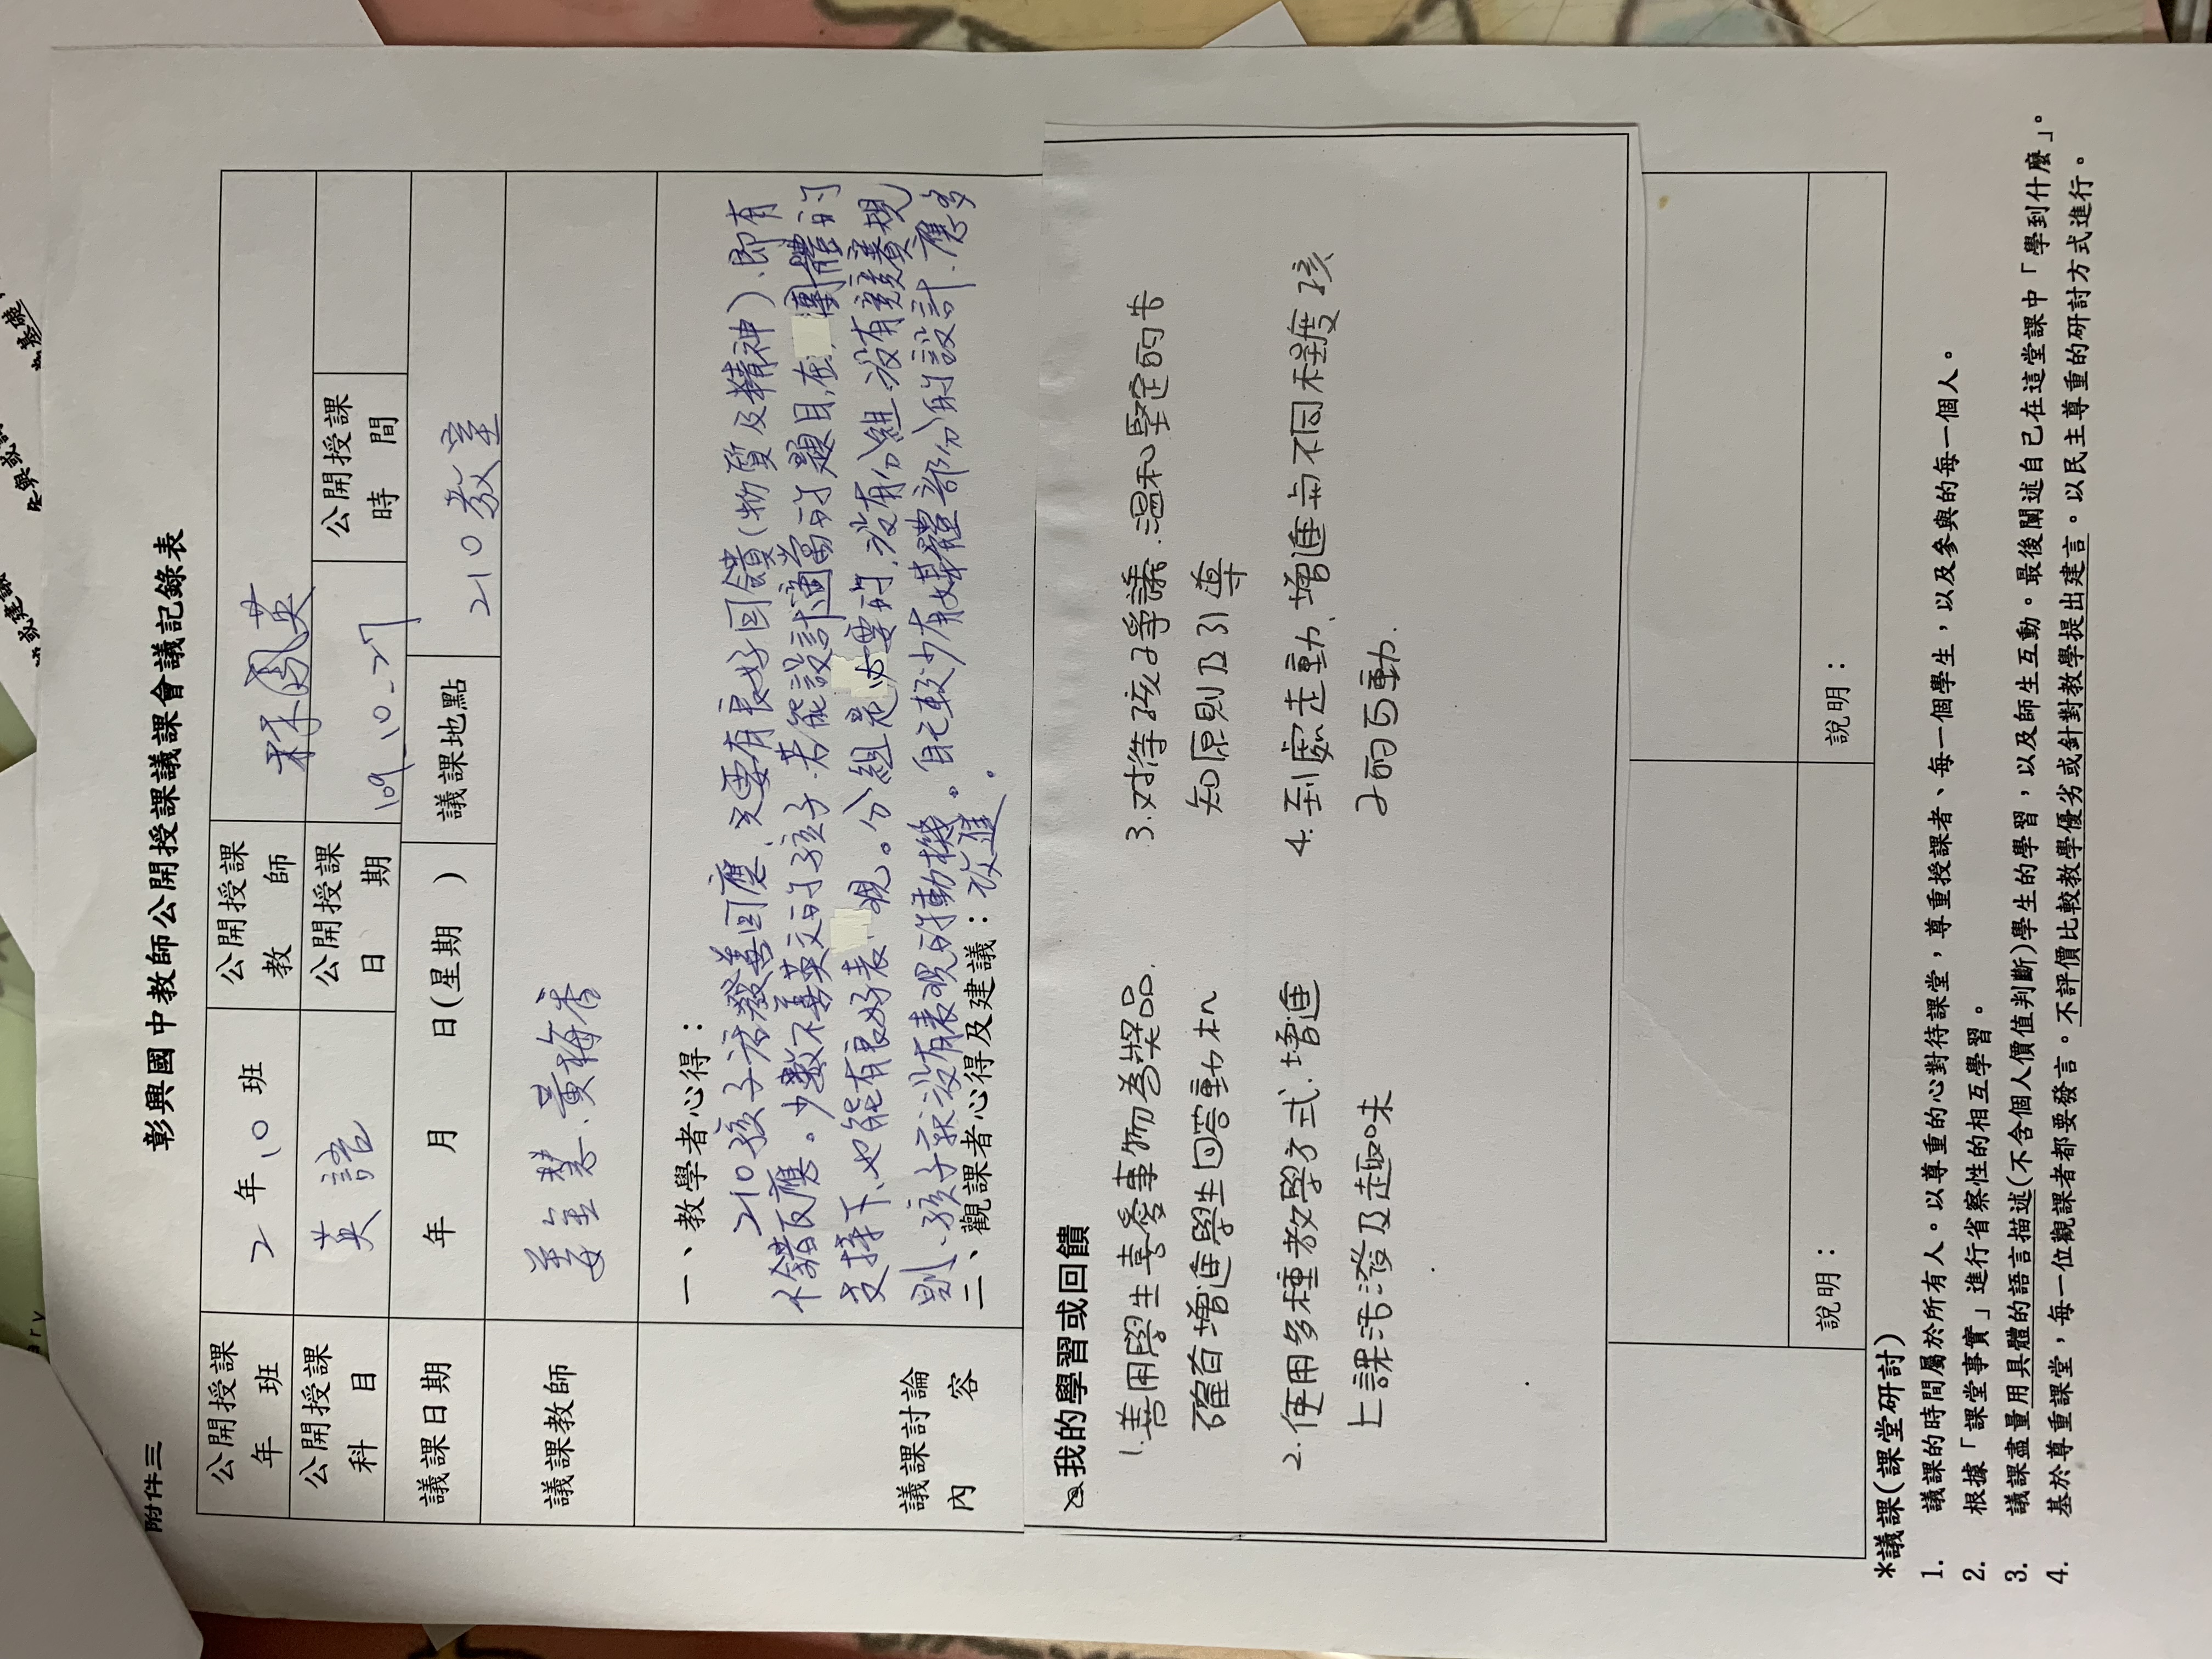 附件三
彰興國中教師公開授課議課會議記錄表
公開授課年班 2年10班 公開授課教師 林鳳英
公開授課科目 英語 公開授課日期 109-10-27 公開授課時間
議課日期 年 月 日(星期 ) 議課地點 210教室
議課教師 姜金慧、黃梅香
議課討論內容
一、教學者心得:
210孩子活潑善回應、只要有良好回饋(物質及精神)、即有
不錯反應。少數不善英文的孩子、若能設計適當的題目、在團體的
支持下、也能有良好表現。分組是必要的、沒有分組、沒有競賽規
則、孩子就沒有表現的動機。自己較少有媒體部份的設計、應多
二、觀課者心得及建議: 改進。
我的學習或回饋
1.善用學生喜愛事物為獎品.
確首增進學生回答動机
2.使用多種教學方式.增進
上課活潑及趣味
3.对待孩子爭議.溫和堅定的告
知原則及引導
4.到處走動、增進與不同程度孩
子的互動.
說明:
說明:
*議課(課堂研討)
1. 議課的時間屬於所有人。以尊重的心對待課堂,尊重授課者、每一個學生,以及參與的每一個人。
2. 根據「課堂事實」進行省察性的相互學習。
3. 議課盡量用具體的語言描述(不含個人價值判斷)學生的學習,以及師生互動。最後闡述自己在這堂課中「學到什麼」。
4. 基於尊重課堂,每一位觀課者都要發言。不評價比較教學優劣或針對教學提出建言。以民主尊重的研討方式進行。